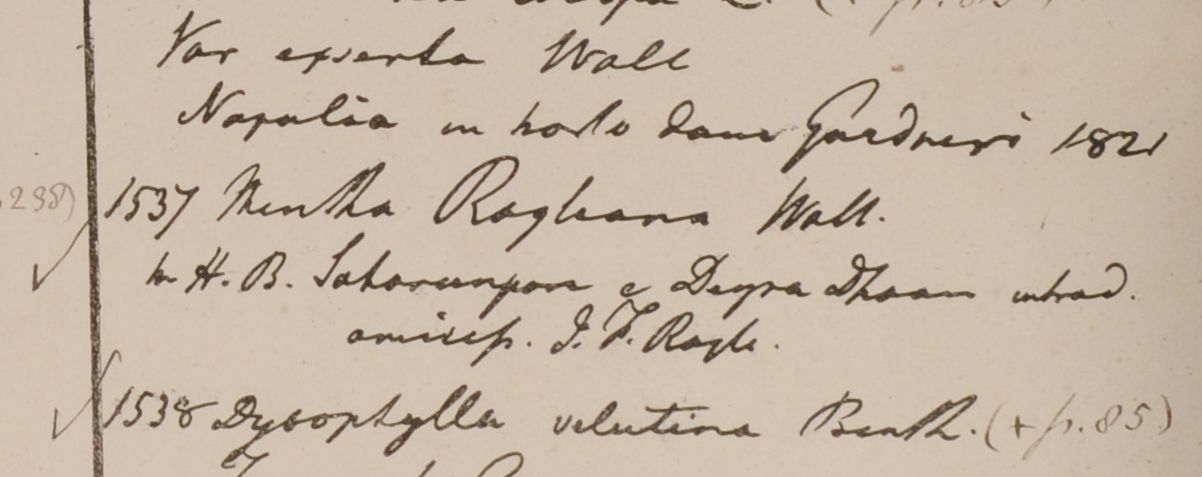 Var exserta Wall
Napalia in horto dom Gardneri 1821
238)
1537 Mentha Royleana Wall.
in H. B. Saharunpore e Deyra Dhoon introd.
amicis. J. F. Royle.
1538 Dysophylla velutina Benth. (+ p. 85)